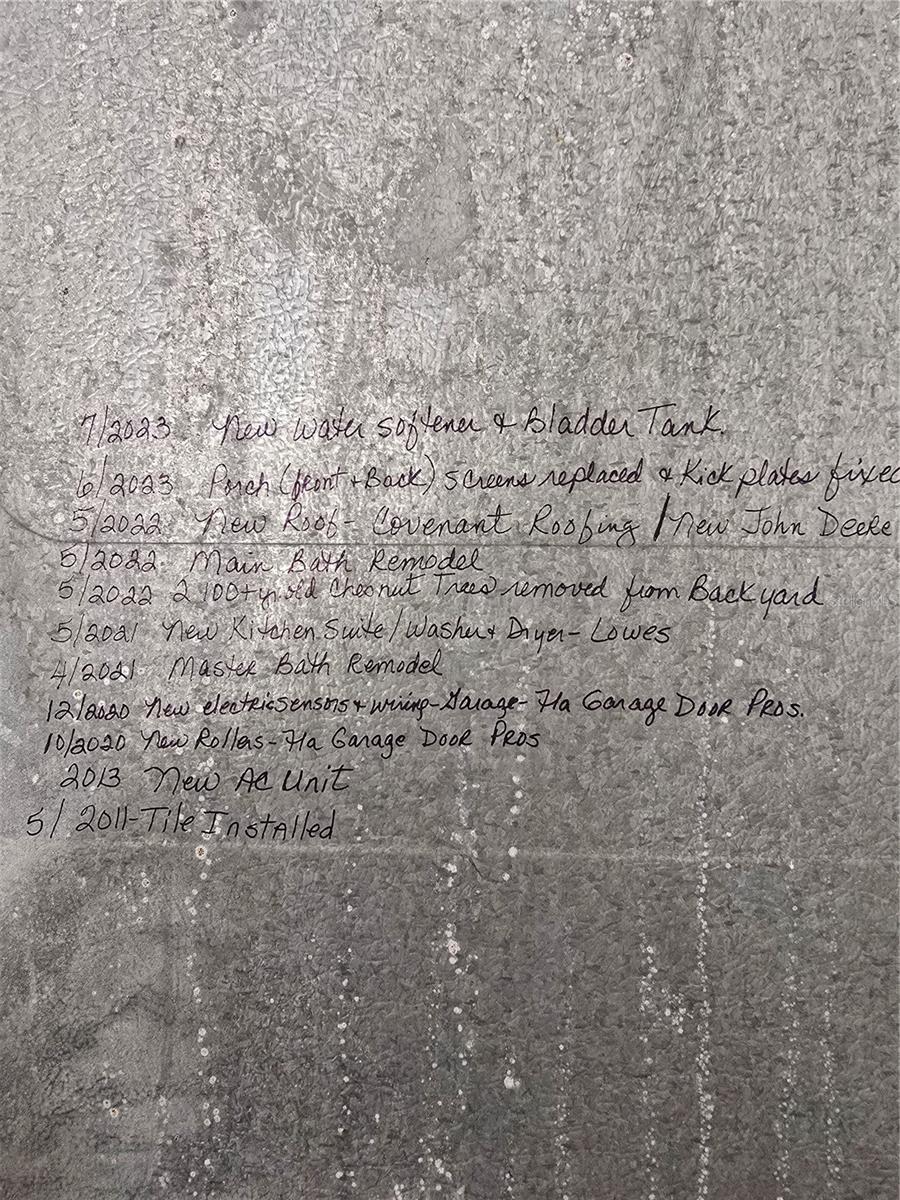 7/2023 New water softener & Bladder Tank.
6/2023 Porch (front + Back) screens replaced & Kick plates fixed
5/2022 New Roof - Covenant Roofing / New John Deere
5/2022 Main Bath Remodel
5/2022 2 100+ yr old Chesnut Trees removed from Backyard
5/2021 New Kitchen Suite / Washer + Dryer - Lowes
4/2021 Master Bath Remodel
12/2020 New electric sensors + wiring - Garage - Fla Garage Door Pros.
10/2020 New Rollers - Fla Garage Door Pros
2013 New AC Unit
5/2011 - Tile Installed